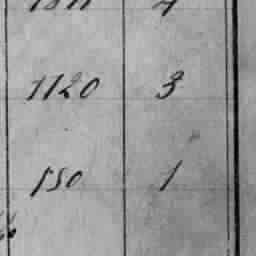 1120 3
150 1